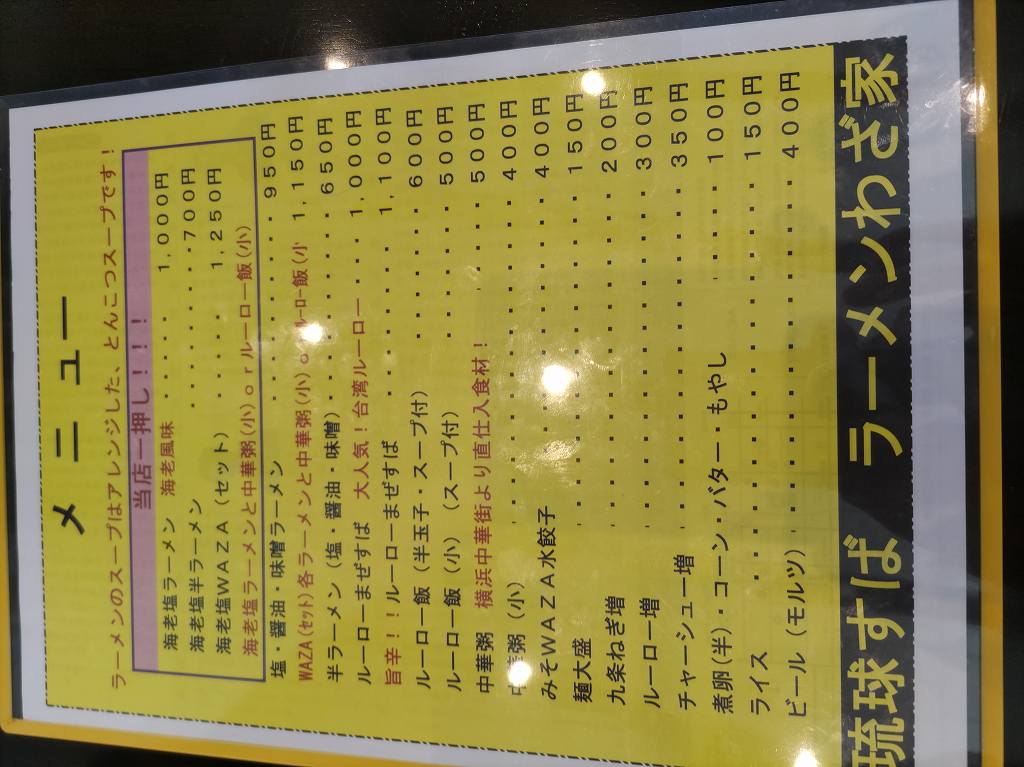 メニュー
ラーメンのスープはアレンジした、とんこつスープです！
当店一押し！！！
海老塩ラーメン　海老風味・・・・・1,000円
海老塩半ラーメン・・・・・・・・・700円
海老塩WAZA（セット）・・・・・1,250円
海老塩ラーメンと中華粥(小)orルーロー飯(小)
塩・醤油・味噌ラーメン・・・・・・・・・950円
WAZA(セット)各ラーメンと中華粥(小)orルーロー飯(小 1,150円
半ラーメン（塩・醤油・味噌）・・・・・・・650円
ルーローまぜすば　大人気！台湾ルーロー・・・・1,000円
旨辛！！ルーローまぜすば・・・・・・・1,100円
ルーロー飯（半玉子・スープ付）・・・・・・・600円
ルーロー飯（小）（スープ付）・・・・・・・500円
中華粥　横浜中華街より直仕入食材！・・・・・500円
中華粥（小）・・・・・・・・・・・・・・400円
みそWAZA水餃子・・・・・・・・・・・・400円
麺大盛・・・・・・・・・・・・・・150円
九条ねぎ増・・・・・・・・・・・・・・200円
ルーロー増・・・・・・・・・・・・・・300円
チャーシュー増・・・・・・・・・・・・・・350円
煮卵(半)・コーン・バター・もやし・・・・・100円
ライス・・・・・・・・・・・・・・・・150円
ビール（モルツ）・・・・・・・・・・・・・・400円
琉球すば　ラーメンわざ家